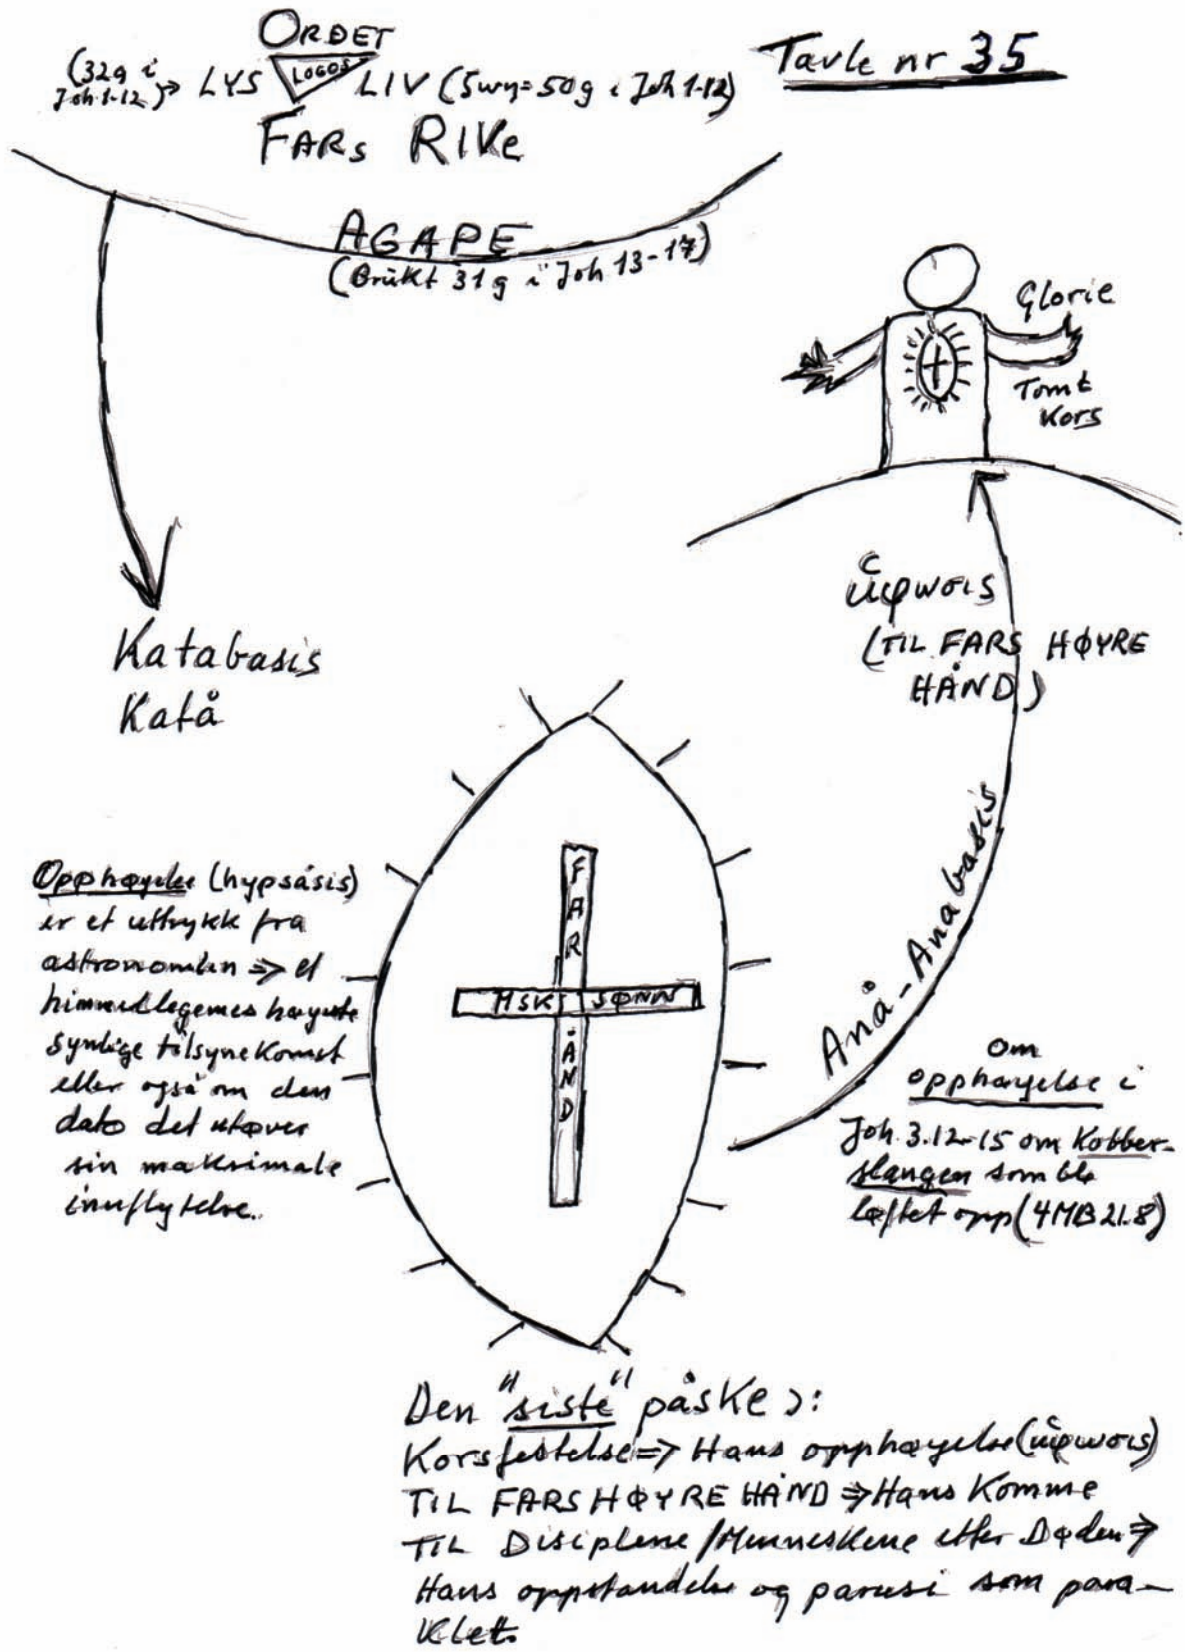 ORDET
Tavle nr 35
(32g i
Joh 1-12)→ LYS LOGOS LIV (5wη=50g i Joh 1-12)
FARs RIKe
AGAPE
(Brukt 31g i Joh 13-17)
Glorie
Tomt
Kors
ὕψωσις
(TIL FARS HØYRE
HÅND)
Katabasis
Katå
FAR
MSK SØNN
ÅND
Anå-Anabasis
Opphøyelse (hypsåsis)
er et uttrykk fra
astronomien => et
himmellegemes høyeste
synlige tilsynekomst
eller også om den
dato det utøver
sin maksimale
innflytelse.
om
opphøyelse i
Joh. 3.12-15 om Kobber-
slangen som ble
løftet opp (4MB 21.8)
Den "siste" påske ɔ:
Korsfestelse => Hans opphøyelse (ὕψωσις)
TIL FARS HØYRE HÅND => Hans Komme
TIL Disiplene/Menneskene etter Døden =>
Hans oppstandelse og parusi som para-
klet.